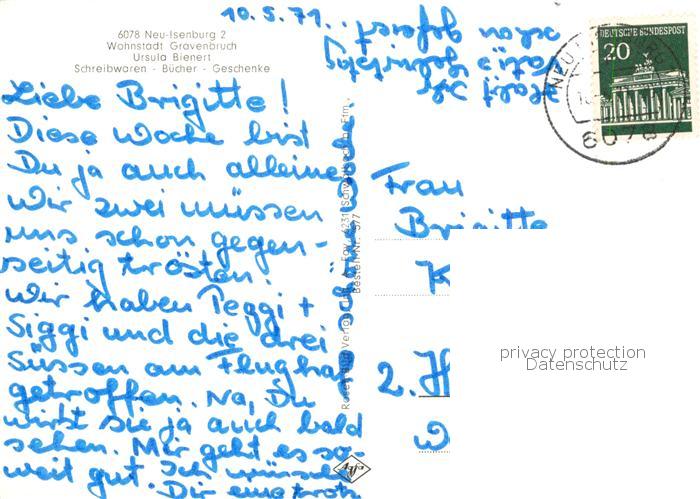 10.5.71.
6078 Neu-Isenburg 2
Wohnstadt Gravenbruch
Ursula Bienert
Schreibwaren - Bücher - Geschenke
Liebe Brigitte!
Diese Woche bist
Du ja auch alleine
Wir zwei müssen
uns schon gegen-
seitig trösten.
Wir haben Peggi +
Siggi und die drei
Süssen am Flugha
getroffen. Na, Du
wirst sie ja auch bald
sehen. Mir geht es so-
weit gut. Ich wünsche
Dir eine
schöne Woche
Bestell-Nr. 577
Agfa
DEUTSCHE BUNDESPOST
20
NEU
6078
Frau
Brigitte
K
2. H
W
privacy protection
Datenschutz